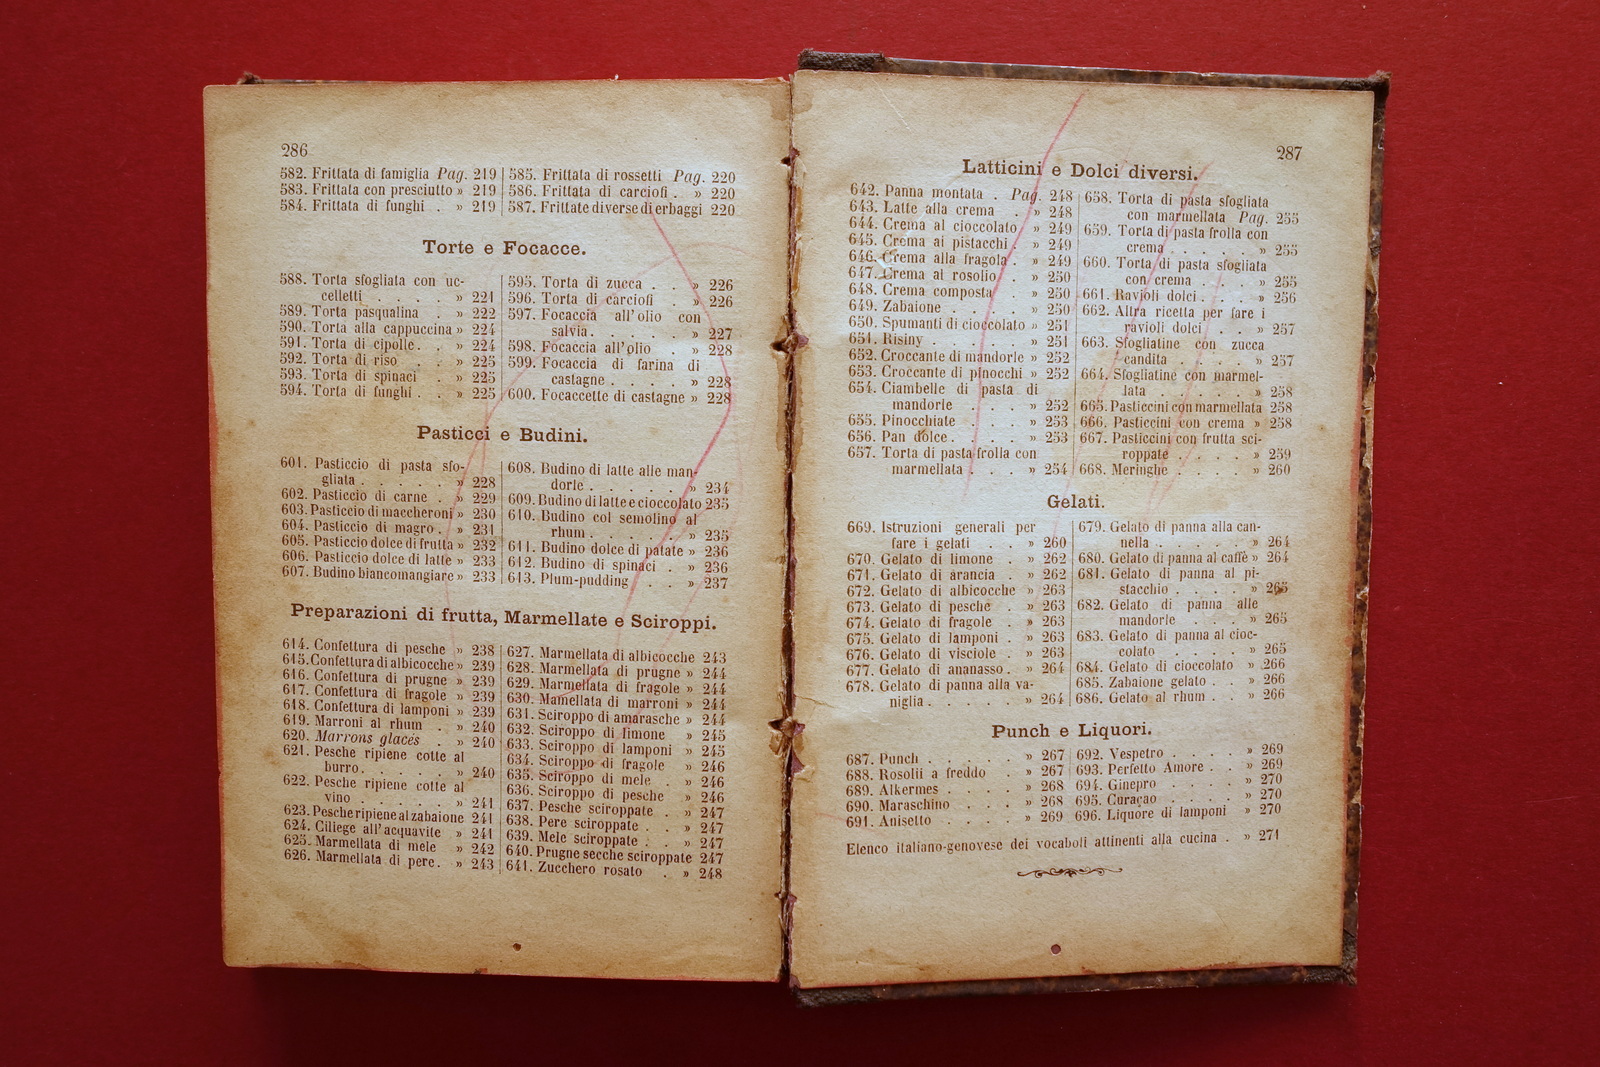 286
582. Frittata di famiglia Pag. 219
583. Frittata con presciutto » 219
584. Frittata di funghi . » 219
585. Frittata di rossetti Pag. 220
586. Frittata di carciofi . » 220
587. Frittate diverse di erbaggi 220
Torte e Focacce.
588. Torta sfogliata con uc-
celletti . . . . » 221
589. Torta pasqualina . » 222
590. Torta alla cappuccina » 224
591. Torta di cipolle . . » 224
592. Torta di riso . . » 225
593. Torta di spinaci . » 225
594. Torta di funghi . . » 225
595. Torta di zucca . . » 226
596. Torta di carciofi . » 226
597. Focaccia all'olio con
salvia . . . . . » 227
598. Focaccia all'olio . » 228
599. Focaccia di farina di
castagne . . . . » 228
600. Focaccette di castagne » 228
Pasticci e Budini.
601. Pasticcio di pasta sfo-
gliata . . . . . » 228
602. Pasticcio di carne . » 229
603. Pasticcio di maccheroni » 230
604. Pasticcio di magro . » 231
605. Pasticcio dolce di frutta » 232
606. Pasticcio dolce di latte » 233
607. Budino biancomangiare » 233
608. Budino di latte alle man-
dorle . . . . . » 234
609. Budino di latte e cioccolato 235
610. Budino col semolino al
rhum . . . . . » 235
611. Budino dolce di patate » 236
612. Budino di spinaci . » 236
613. Plum-pudding . . » 237
Preparazioni di frutta, Marmellate e Sciroppi.
614. Confettura di pesche » 238
615. Confettura di albicocche » 239
616. Confettura di prugne » 239
617. Confettura di fragole » 239
618. Confettura di lamponi » 239
619. Marroni al rhum . » 240
620. Marrons glacés . » 240
621. Pesche ripiene cotte al
burro . . . . . » 240
622. Pesche ripiene cotte al
vino . . . . . » 241
623. Pesche ripiene al zabaione 241
624. Ciliege all'acquavite » 241
625. Marmellata di mele » 242
626. Marmellata di pere . » 243
627. Marmellata di albicocche 243
628. Marmellata di prugne » 244
629. Marmellata di fragole » 244
630. Mamellata di marroni » 244
631. Sciroppo di amarasche » 244
632. Sciroppo di limone » 245
633. Sciroppo di lamponi » 245
634. Sciroppo di fragole » 246
635. Sciroppo di mele . » 246
636. Sciroppo di pesche » 246
637. Pesche sciroppate . » 247
638. Pere sciroppate . . » 247
639. Mele sciroppate . . » 247
640. Prugne secche sciroppate 247
641. Zucchero rosato . » 248
287
Latticini e Dolci diversi.
642. Panna montata . Pag. 248
643. Latte alla crema . » 248
644. Crema al cioccolato » 249
645. Crema ai pistacchi . » 249
646. Crema alla fragola . » 249
647. Crema al rosolio . » 250
648. Crema composta . » 250
649. Zabaione . . . . » 250
650. Spumanti di cioccolato » 251
651. Risiny . . . . . » 251
652. Croccante di mandorle » 252
653. Croccante di pinocchi » 252
654. Ciambelle di pasta di
mandorle . . . » 252
655. Pinocchiate . . . » 253
656. Pan dolce . . . . » 253
657. Torta di pasta frolla con
marmellata . . . » 254
658. Torta di pasta sfogliata
con marmellata Pag. 255
659. Torta di pasta frolla con
crema . . . . . » 255
660. Torta di pasta sfogliata
con crema . . . . » 255
661. Ravioli dolci . . . » 256
662. Altra ricetta per fare i
ravioli dolci . . » 257
663. Sfogliatine con zucca
candita . . . . » 257
664. Sfogliatine con marmel-
lata . . . . . » 258
665. Pasticcini con marmellata 258
666. Pasticcini con crema » 258
667. Pasticcini con frutta sci-
roppate . . . . » 259
668. Meringhe . . . . » 260
Gelati.
669. Istruzioni generali per
fare i gelati . . » 260
670. Gelato di limone . » 262
671. Gelato di arancia . » 262
672. Gelato di albicocche » 263
673. Gelato di pesche . » 263
674. Gelato di fragole . » 263
675. Gelato di lamponi . » 263
676. Gelato di visciole » 263
677. Gelato di ananasso . » 264
678. Gelato di panna alla va-
niglia . . . . . » 264
679. Gelato di panna alla can-
nella . . . . . » 264
680. Gelato di panna al caffè » 264
681. Gelato di panna al pi-
stacchio . . . . » 265
682. Gelato di panna alle
mandorle . . . » 265
683. Gelato di panna al cioc-
colato . . . . » 265
684. Gelato di cioccolato » 266
685. Zabaione gelato . . » 266
686. Gelato al rhum . . » 266
Punch e Liquori.
687. Punch . . . . . » 267
688. Rosolii a freddo . » 267
689. Alkermes . . . . » 268
690. Maraschino . . . » 268
691. Anisetto . . . . » 269
692. Vespetro . . . . » 269
693. Perfetto Amore . . » 269
694. Ginepro . . . . » 270
695. Curaçao . . . . » 270
696. Liquore di lamponi » 270
Elenco italiano-genovese dei vocaboli attinenti alla cucina . » 271